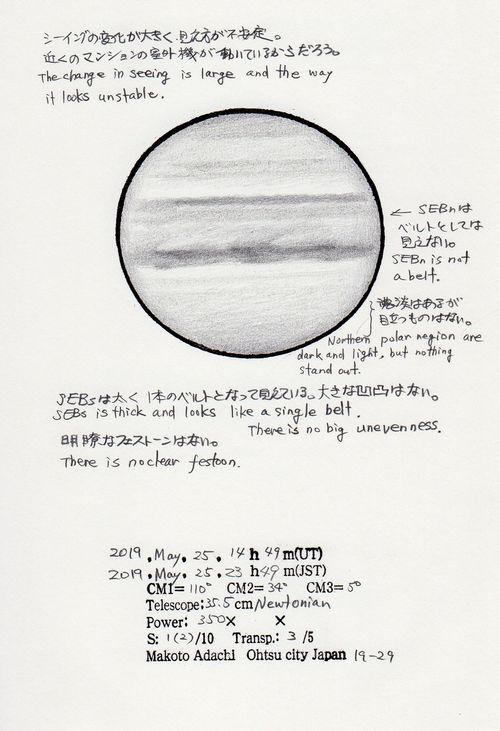 シーイングの変化が大きく見え方が不安定。
近くのマンションの室外機が動いているからだろう。
The change in seeing is large and the way
it looks unstable.
← SEBnは
ベルトとしては
見えない。
SEBn is not
a belt.
濃淡はあるが
目立つものはない。
Northern polar region are
dark and light, but nothing
stand out.
SEBsは太く1本のベルトとなって見えている。大きな凹凸はない。
SEBs is thick and looks like a single belt.
There is no big unevenness.
明瞭なフェストーンはない。
There is no clear festoon.
2019.May.25.14 h 49 m(UT)
2019.May.25.23 h 49 m(JST)
CM1=110° CM2=34° CM3=5°
Telescope:35.5cm Newtonian
Power: 350× ×
S: 1(2)/10 Transp.: 3 /5
Makoto Adachi Ohtsu city Japan 19-29